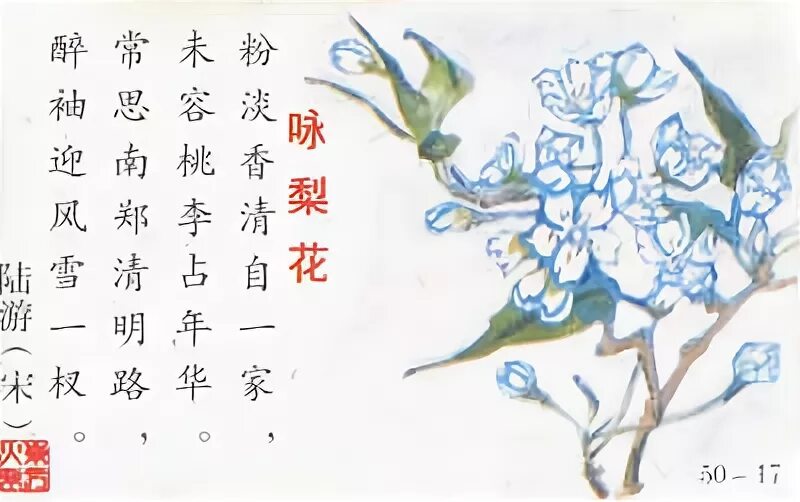 咏梨花
粉淡香清自一家，
未容桃李占年华。
常思南郑清明路，
醉袖迎风雪一杈。
陆游（宋）
50－17